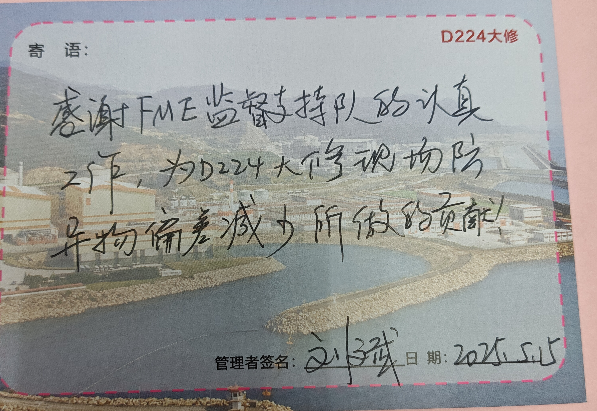 D224大修
寄 语：
感谢FME监督支持队的认真
工作，为D224大修现场防
异物偏差减少所做的贡献！
管理者签名： 日 期：2025.5.15